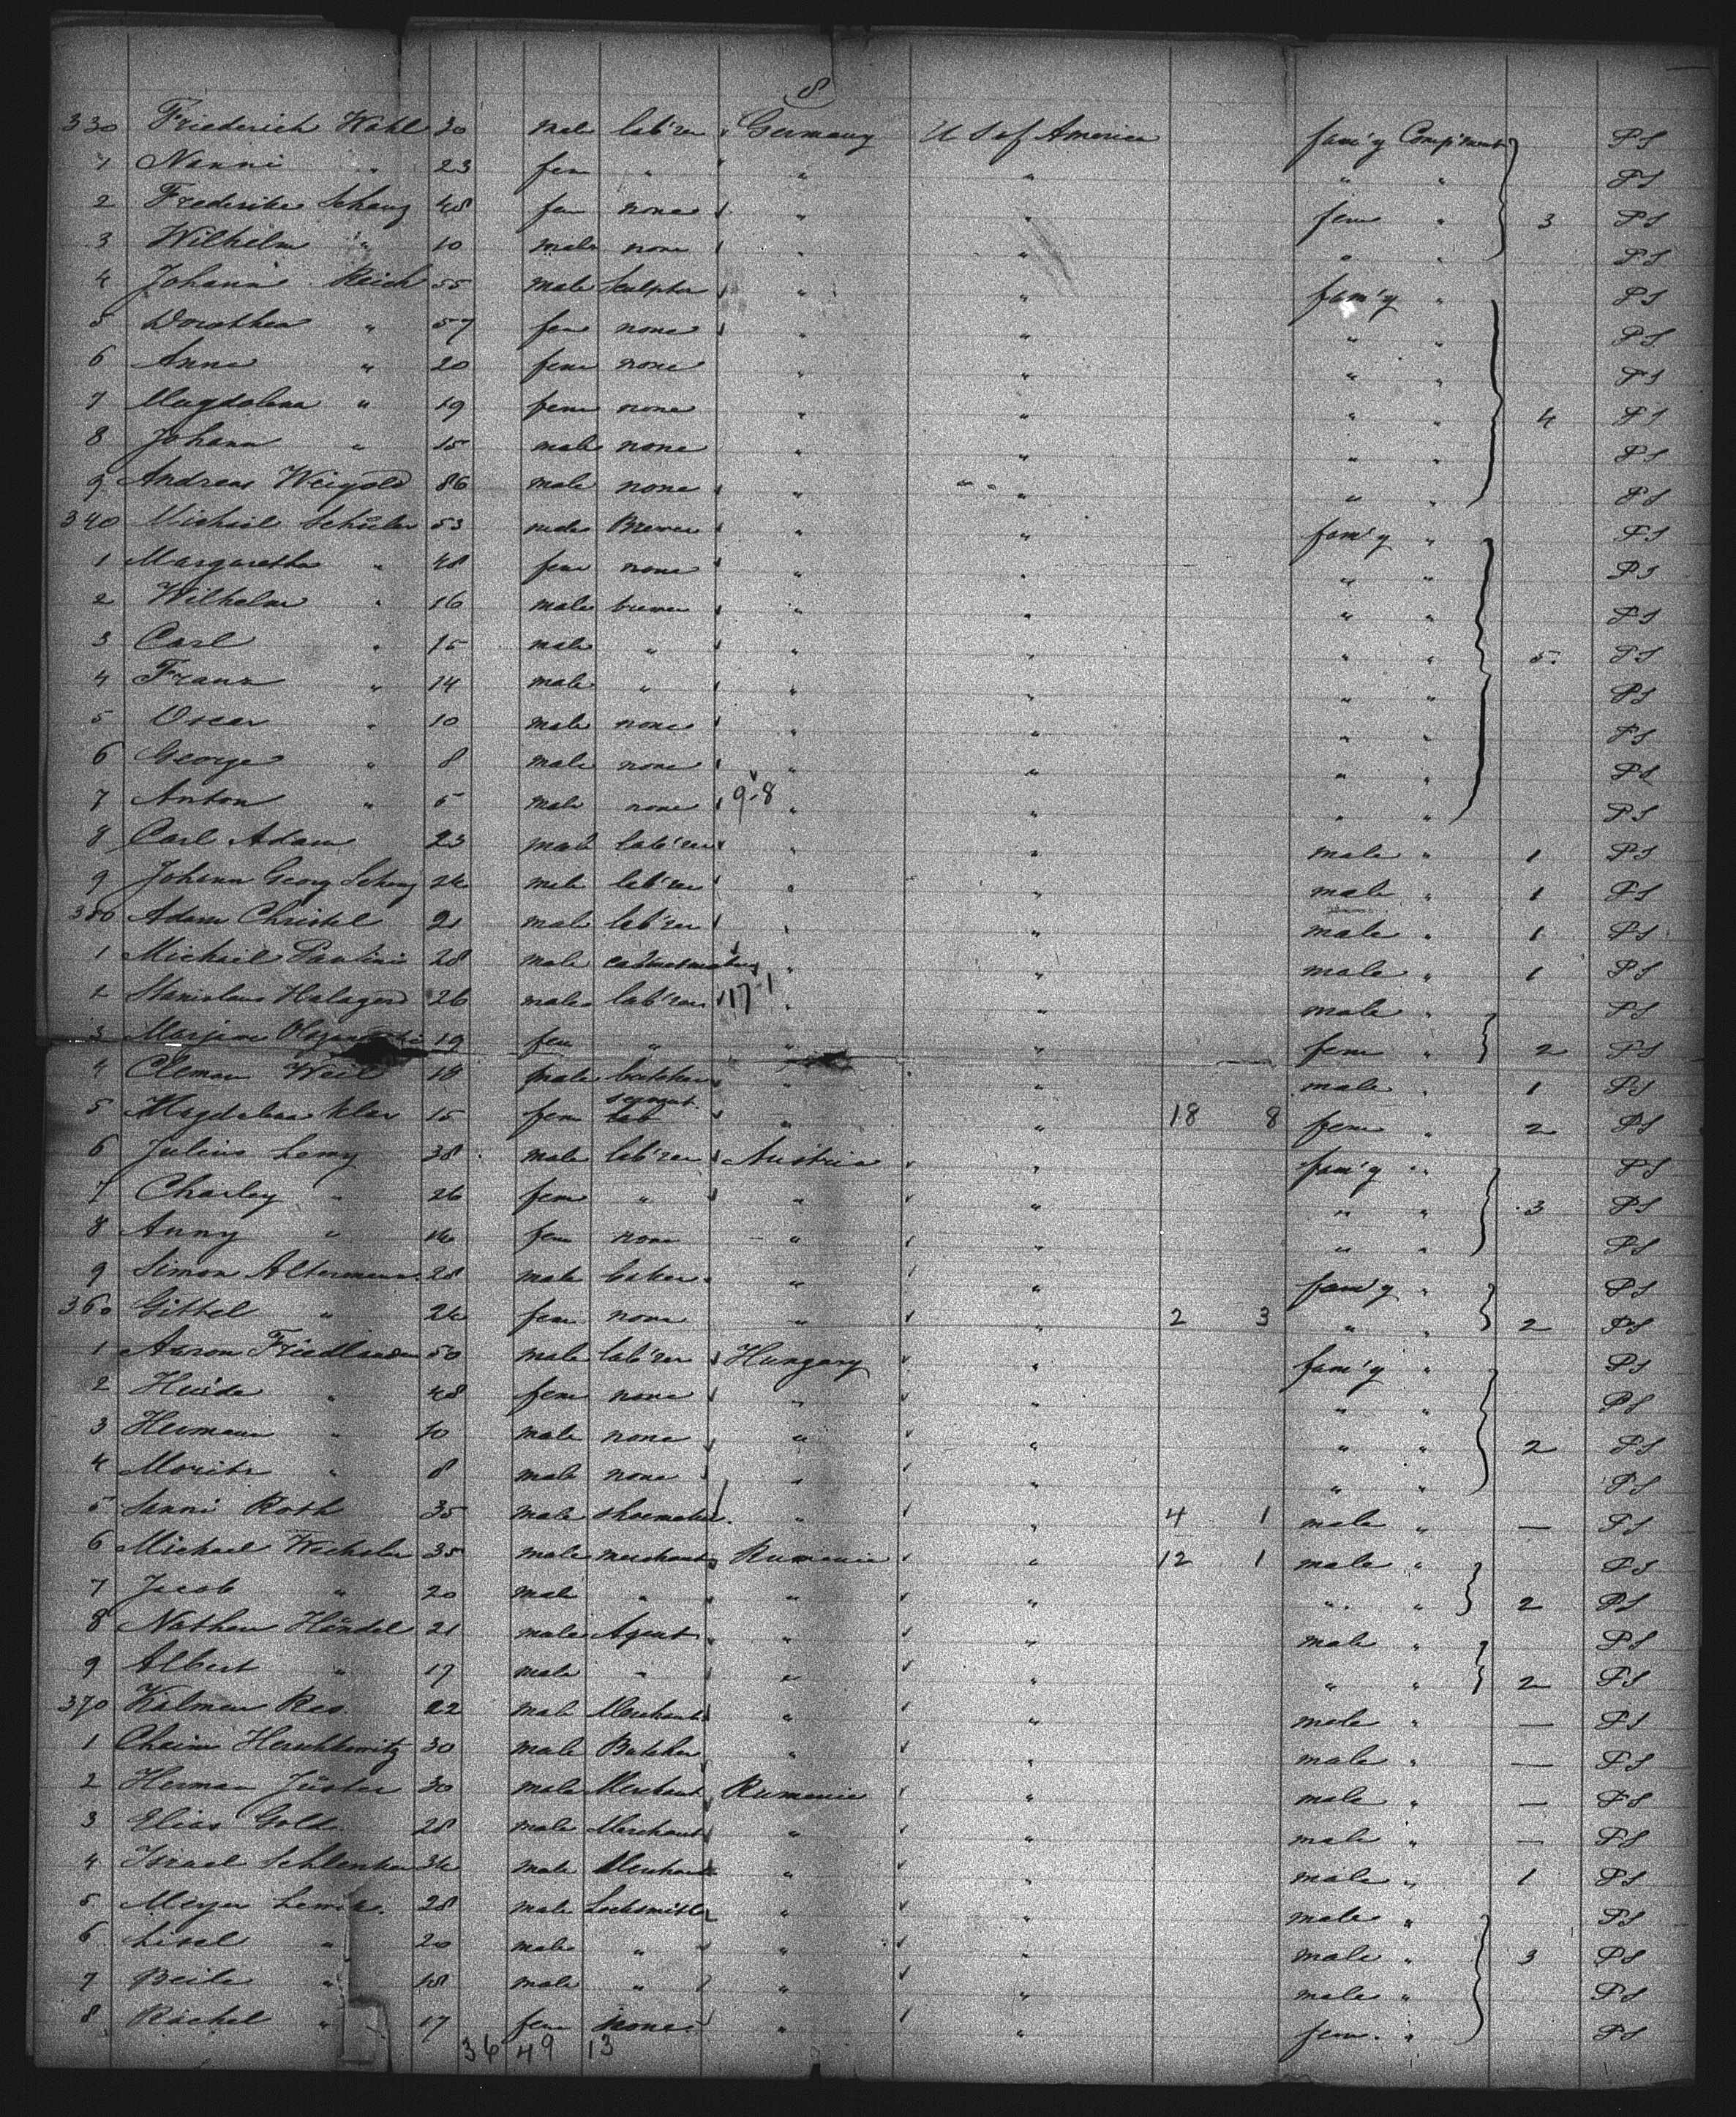 8
330 Friederich Wahl 30 male lab'rer Germany U S of America fam'y Comp'ment PS
1 Nanni " 23 fem " " " " " PS
2 Frederike Schanz 48 fem none " " fem " 3 PS
3 Wilhelm " 10 male none " " " " PS
4 Johann Reich 55 male Sculptor " " fam'y " PS
5 Dorothea " 57 fem none " " " " PS
6 Anna " 20 fem none " " " " PS
7 Magdalena " 19 fem none " " " " 4 PS
8 Johann " 15 male none " " " " PS
9 Andreas Weigold 86 male none " " " " PS
340 Michael Schüler 53 male Brewer " " fam'y " PS
1 Margaretha " 48 fem none " " " " PS
2 Wilhelm " 16 male brewer " " " " PS
3 Carl " 15 male " " " " " 5 PS
4 Franz " 14 male " " " " " PS
5 Oscar " 10 male none " " " " PS
6 George " 8 male none " " " " PS
7 Anton " 5 male none 9-8 " " " " PS
8 Carl Adam 23 male lab'rer " " male " 1 PS
9 Johann Georg Schanz 24 male lab'rer " " male " 1 PS
350 Adam Christel 21 male lab'rer " " male " 1 PS
1 Michael 28 male " " male " 1 PS
2 Stanislaus 26 male lab'rer 17-1 " " male " PS
3 19 fem " " " fem " 2 PS
4 Clemen Weil 18 male butcher " " male " 1 PS
5 Magdalena Klar 15 fem servant lab " " 18 8 fem " 2 PS
6 Julius Lemy 38 male lab'rer Austria " fam'y " PS
7 Charley " 26 fem " " " " " 3 PS
8 Anny " fem none " " " " PS
9 Simon Altermann 28 male baker " " fam'y " PS
360 Gittel " 24 fem none " " 2 3 " " 2 PS
1 Aaron Friedlander 50 male lab'rer Hungary " fam'y " PS
2 " 48 fem none " " " " PS
3 Hermann " 10 male none " " " " 2 PS
4 Moritz " 8 male none " " " " PS
5 Roth 35 male shoemaker " " 4 1 male " — PS
6 Michael Wechsler 35 male merchant Rumania " 12 1 male " PS
7 Jacob " 20 male " " " " " 2 PS
8 Nathan Händel 21 male Agent " " male " PS
9 Albert " 17 male " " " " " 2 PS
370 Kalman 22 male Merchant " " male " — PS
1 Chaim Herschkowitz 30 male Butcher " " male " — PS
2 Herman Jüster 30 male Merchant Rumania " male " — PS
3 Elias Gold 28 male Merchant " " male " — PS
4 Israel Schlenker 34 male Merchant " " male " 1 PS
5 Meyer 28 male Locksmith " " male " PS
6 " 20 male " " " male " 3 PS
7 Beile " 18 male " " " male " PS
8 Rachel " 17 fem none " " fem " PS
36 49 13